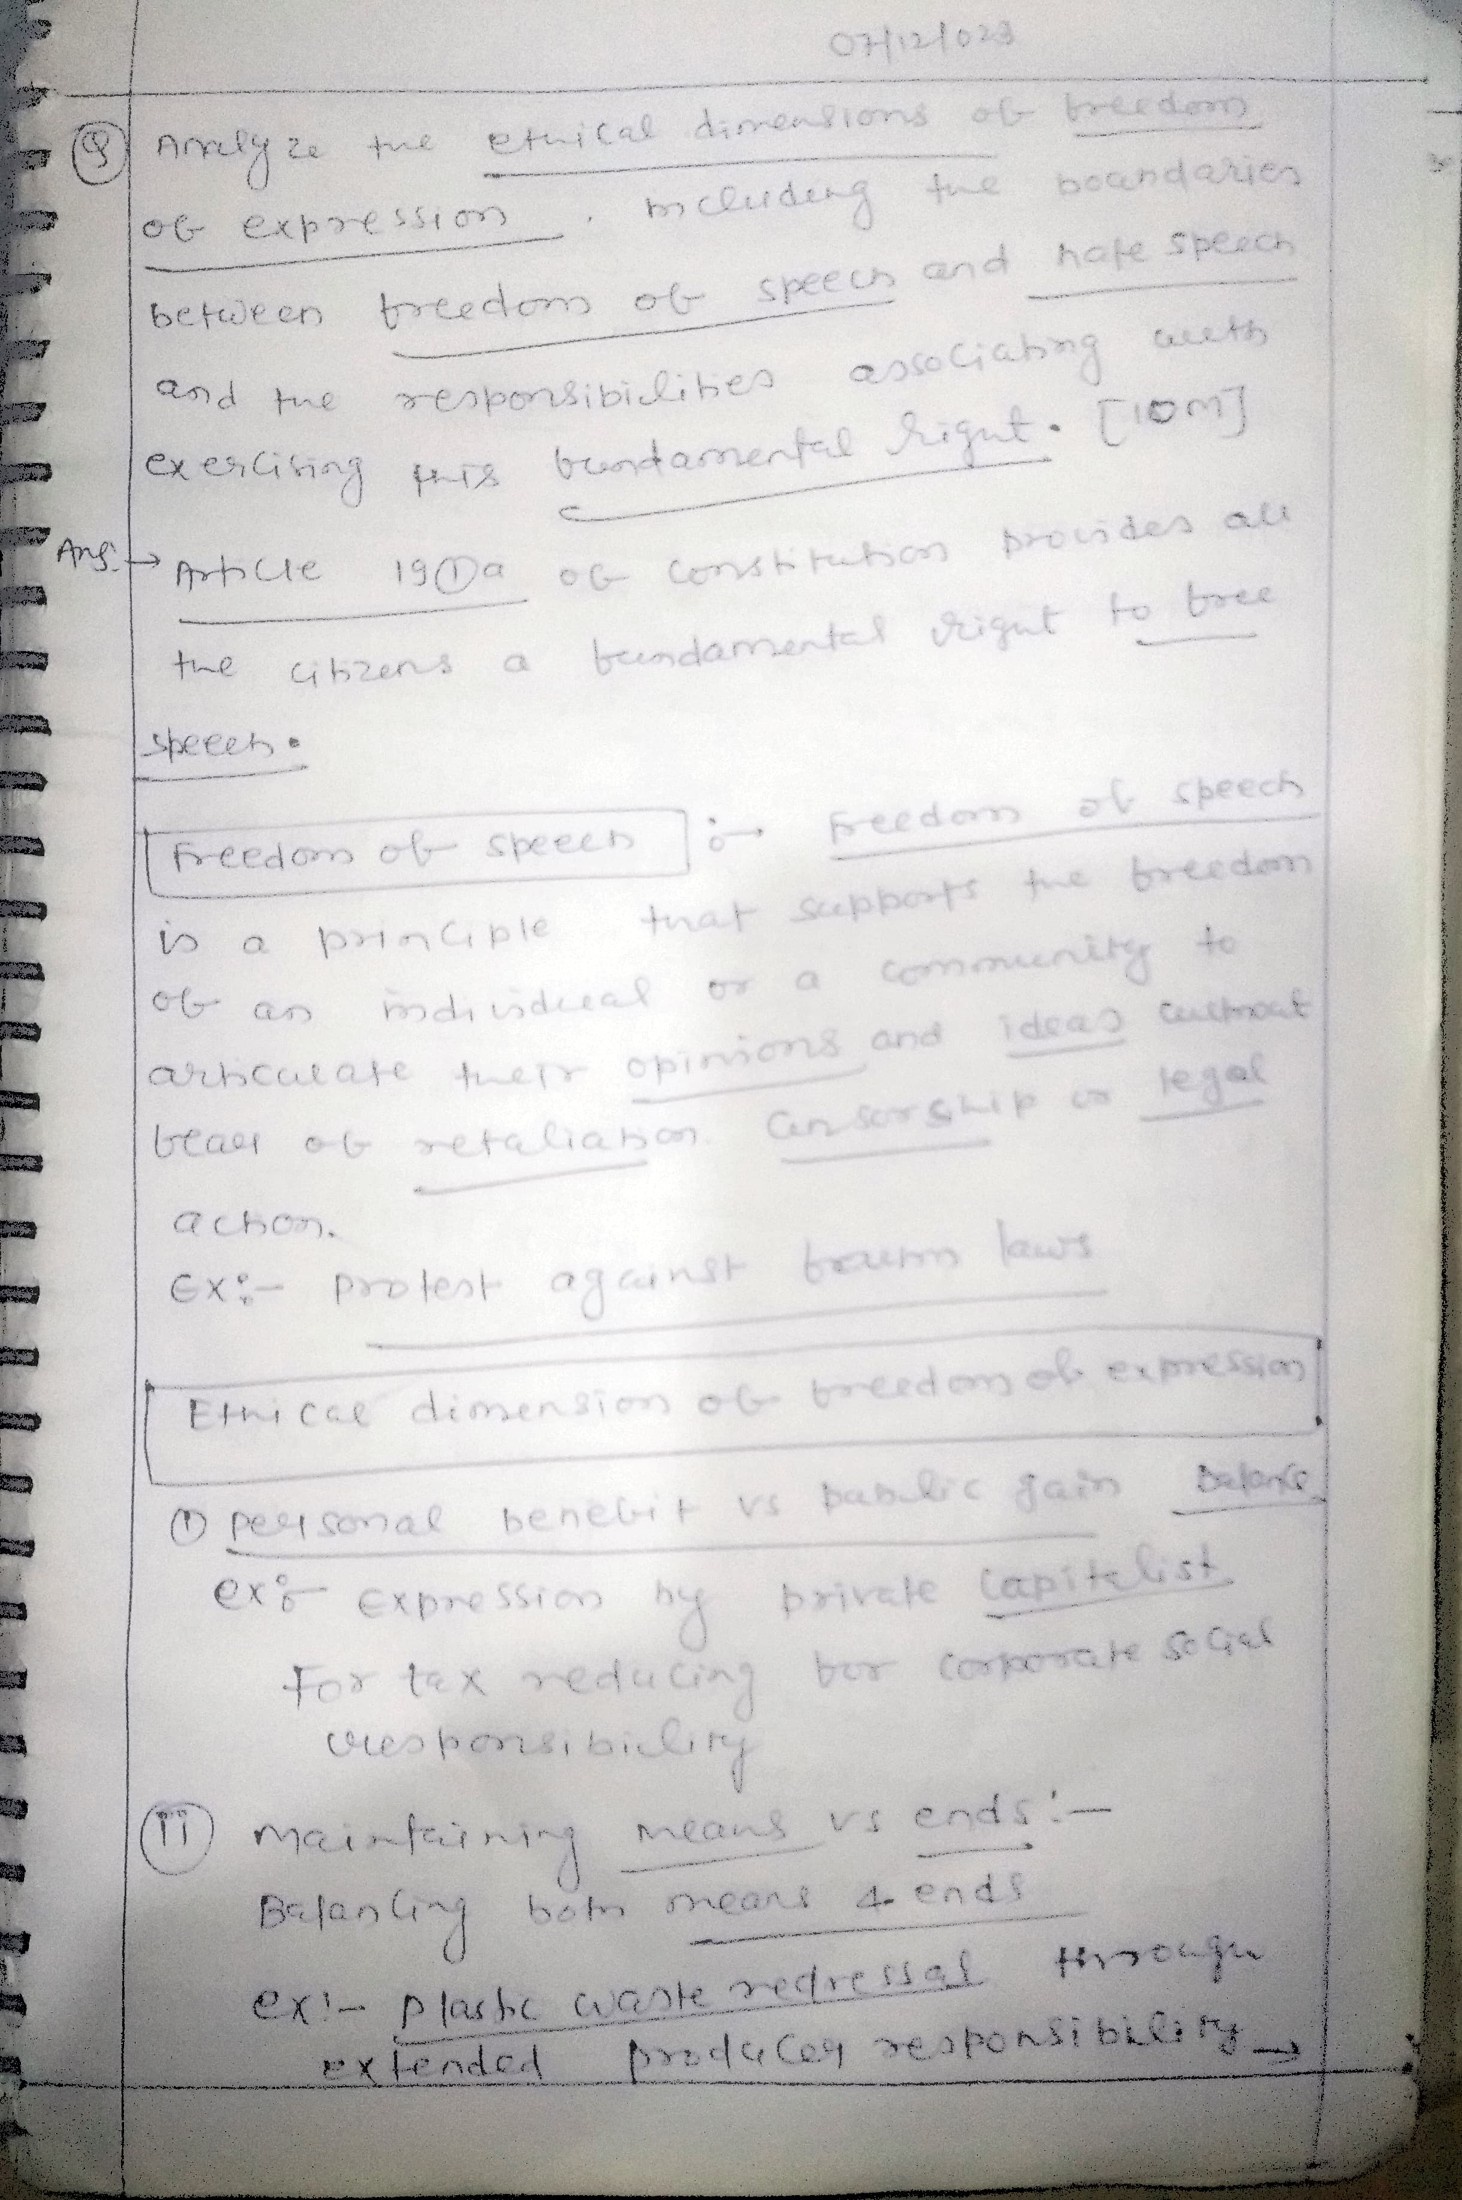 07/12/023
Q Analyze the ethical dimensions of freedom
of expression, including the boundaries
between freedom of speech and hate speech
and the responsibilities associating with
exercising this fundamental right. [10M]
Ans:→ Article 19①a of constitution provides all
the citizens a fundamental right to free
speech.
Freedom of speech :→ Freedom of speech
is a principle that supports the freedom
of an individual or a community to
articulate their opinions and ideas without
fear of retaliation censorship or legal
action.
Ex:- protest against laws
Ethical dimension of freedom of expression
① personal benefit vs public gain Balance
ex:- Expression by private capitalist
For tax reducing for corporate social
responsibility
ii Maintaining means vs ends:-
Balancing both means & ends
ex:- plastic waste redressal through
extended producer responsibility →